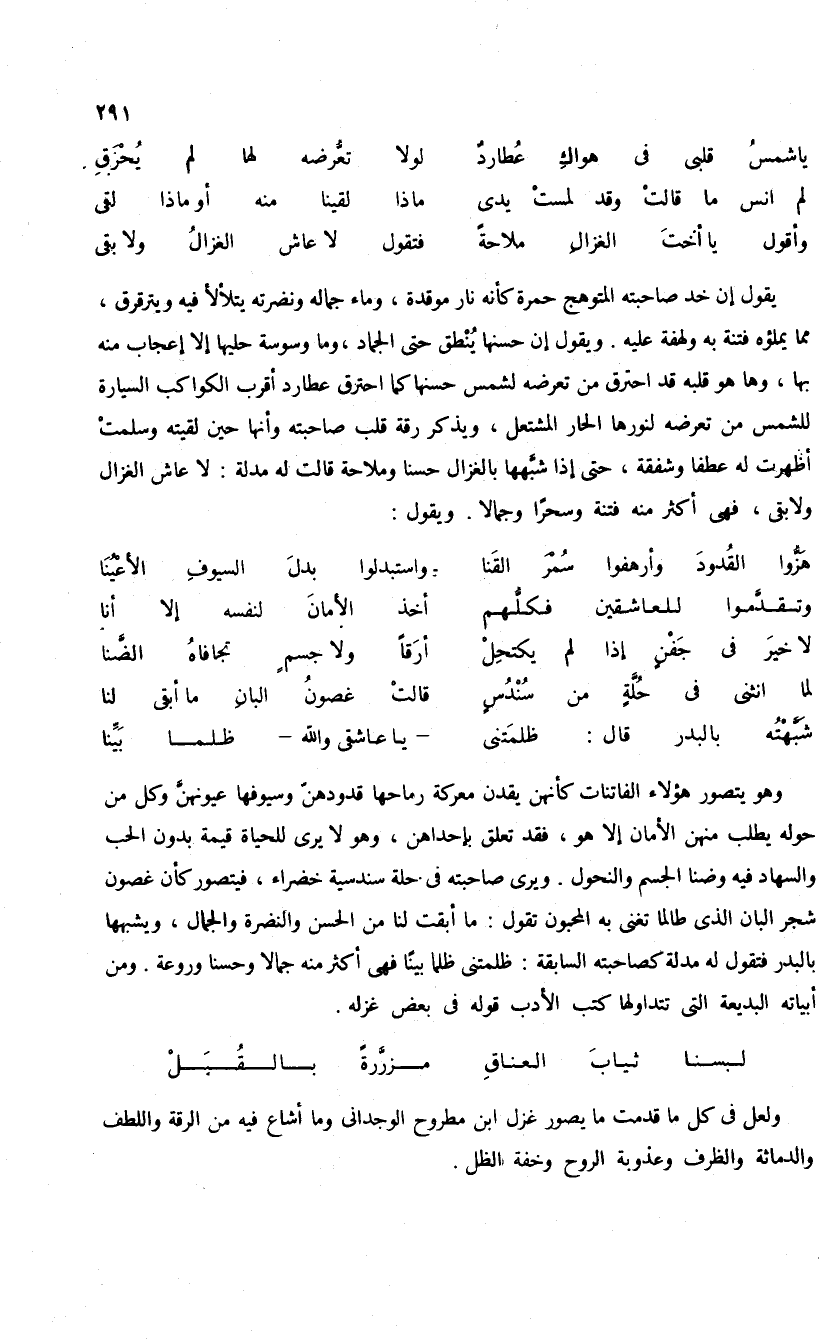 ٢٩١
ياشمسُ قلبى فى هواكِ عُطاردٌ لولا تعُّرضه لها لم يُحْرَقِ
لم انس ما قالتْ وقد لمستْ يدى ماذا لقينا منه أو ماذا لقى
وأقول يا أختَ الغزالِ ملاحةً فتقول لا عاش الغزالُ ولا بقى
يقول إن خد صاحبته المتوهج حمرة كأنه نار موقدة ، وماء جماله ونضرته يتلألأ فيه ويترقرق ،
مما يملؤه فتنة به ولهفة عليه . ويقول إن حسنها يُنْطق حتى الجماد ، وما وسوسة حليها إلا إعجاب منه
بها ، وها هو قلبه قد احترق من تعرضه لشمس حسنها كما احترق عطارد أقرب الكواكب السيارة
للشمس من تعرضه لنورها الحار المشتعل ، ويذكر رقة قلب صاحبته وأنها حين لقيته وسلمتْ
أظهرت له عطفا وشفقة ، حتى إذا شبَّهها بالغزال حسنا وملاحة قالت له مدلة : لا عاش الغزال
ولابقى ، فهى أكثر منه فتنة وسحرًا وجمالا . ويقول :
هَزُّوا القُدودَ وأرهفوا سُمْرَ القَنا واستبدلوا بدلَ السيوفِ الأعْيُنَا
وتـقـدَّمـوا للعاشقين فكلُّهم أخذ الأمانَ لنفسه إلا أنا
لا خيرَ فى جَفْنٍ إذا لم يكتحِلْ أرَقاً ولا جسمٍ تجافاهُ الضَّنا
لما انثنى فى حُلَّةٍ من سُنْدُسٍ قالتْ غصونُ البانِ ما أبقى لنا
شَبَّهْتُه بالبدر قال : ظلمتَنى – يا عاشقى والله – ظلـمـا بَيِّنا
وهو يتصور هؤلاء الفاتنات كأنهن يقدن معركة رماحها قدودهنّ وسيوفها عيونهنَّ وكل من
حوله يطلب منهن الأمان إلا هو ، فقد تعلق بإحداهن ، وهو لا يرى للحياة قيمة بدون الحب
والسهاد فيه وضنا الجسم والنحول . ويرى صاحبته فى حلة سندسية خضراء ، فيتصور كأن غصون
شجر البان الذى طالما تغنى به المحبون تقول : ما أبقت لنا من الحسن والنضرة والجمال ، ويشبهها
بالبدر فتقول له مدلة كصاحبته السابقة : ظلمتنى ظلما بينًا فهى أكثر منه جمالا وحسنا وروعة . ومن
أبياته البديعة التى تتداولها كتب الأدب قوله فى بعض غزله .
لـبـسـنـا ثـيـابَ الـعـنـاقِ مـــزرَّرةً بـــالـــقُـــبَـــلْ
ولعل فى كل ما قدمت ما يصور غزل ابن مطروح الوجدانى وما أشاع فيه من الرقة واللطف
والدماثة والظرف وعذوبة الروح وخفة الظل .